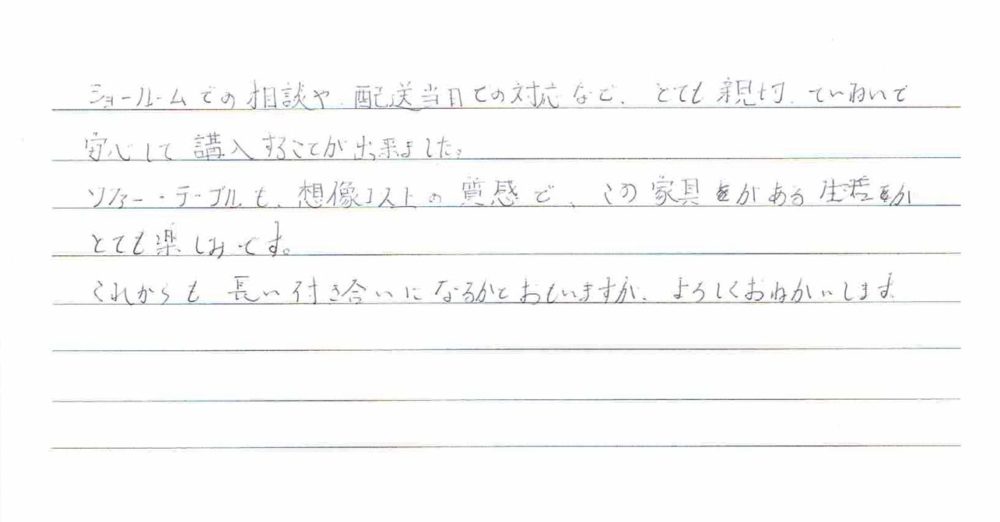 ショールームでの相談や、配送当日での対応など、とても親切、ていねいで
安心して講入することが出来ました。
ソファー・テーブルも、想像以上の質感で、この家具がある生活が
とても楽しみです。
これからも長い付き合いになるかとおもいますが、よろしくおねがいします